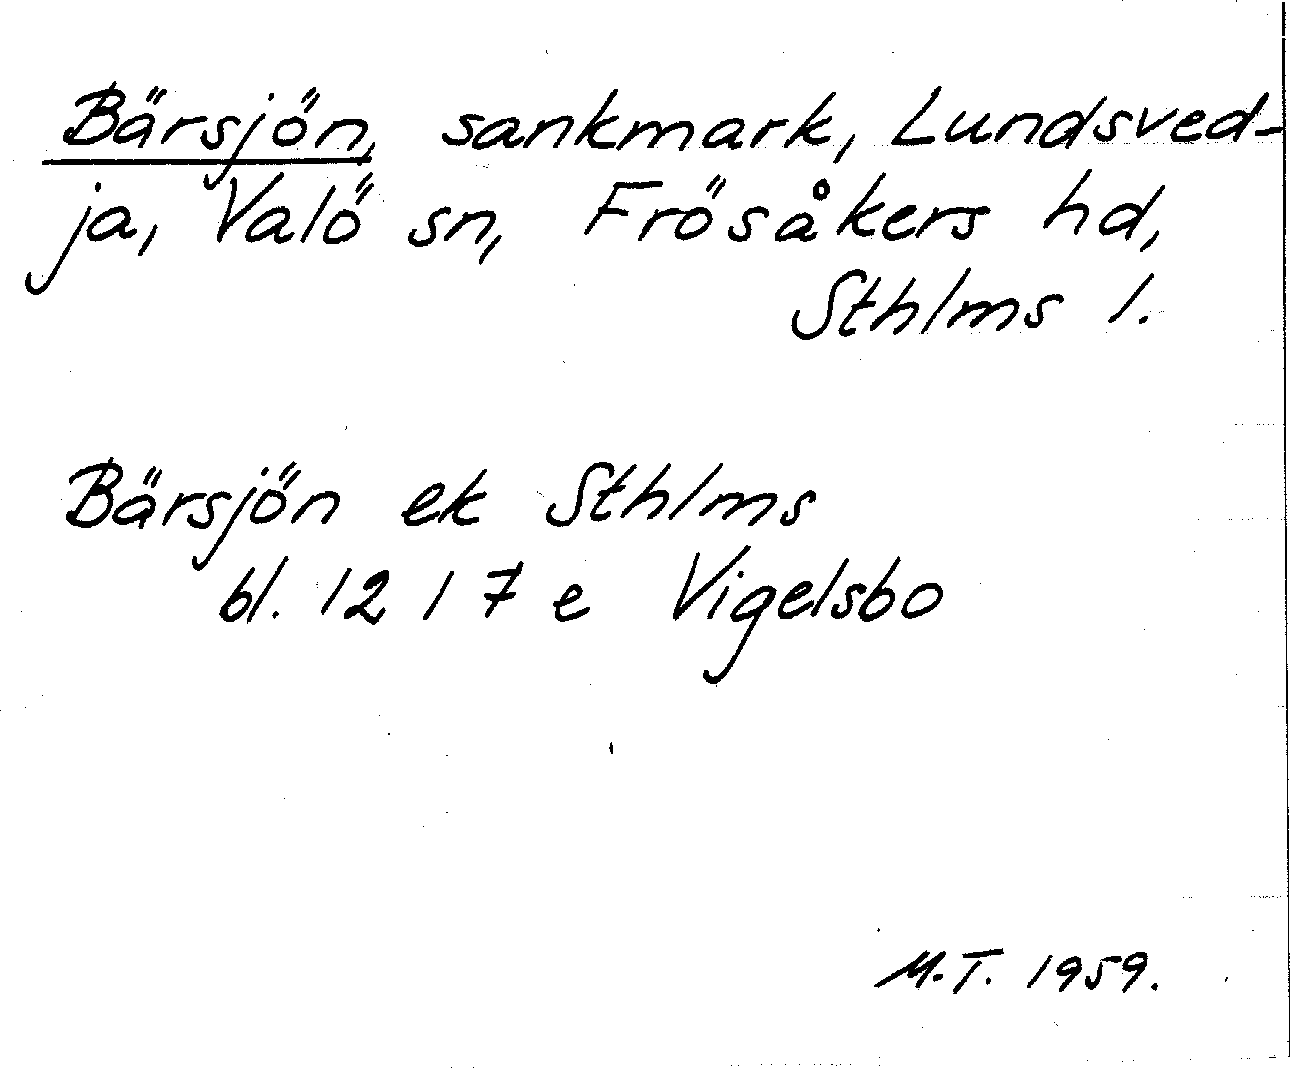 Bärsjön, sankmark, Lundsved-
ja, Valö sn, Frösåkers hd,
Sthlms l.
Bärsjön ek Sthlms
bl. 12 I 7 e Vigelsbo
M.T. 1959.